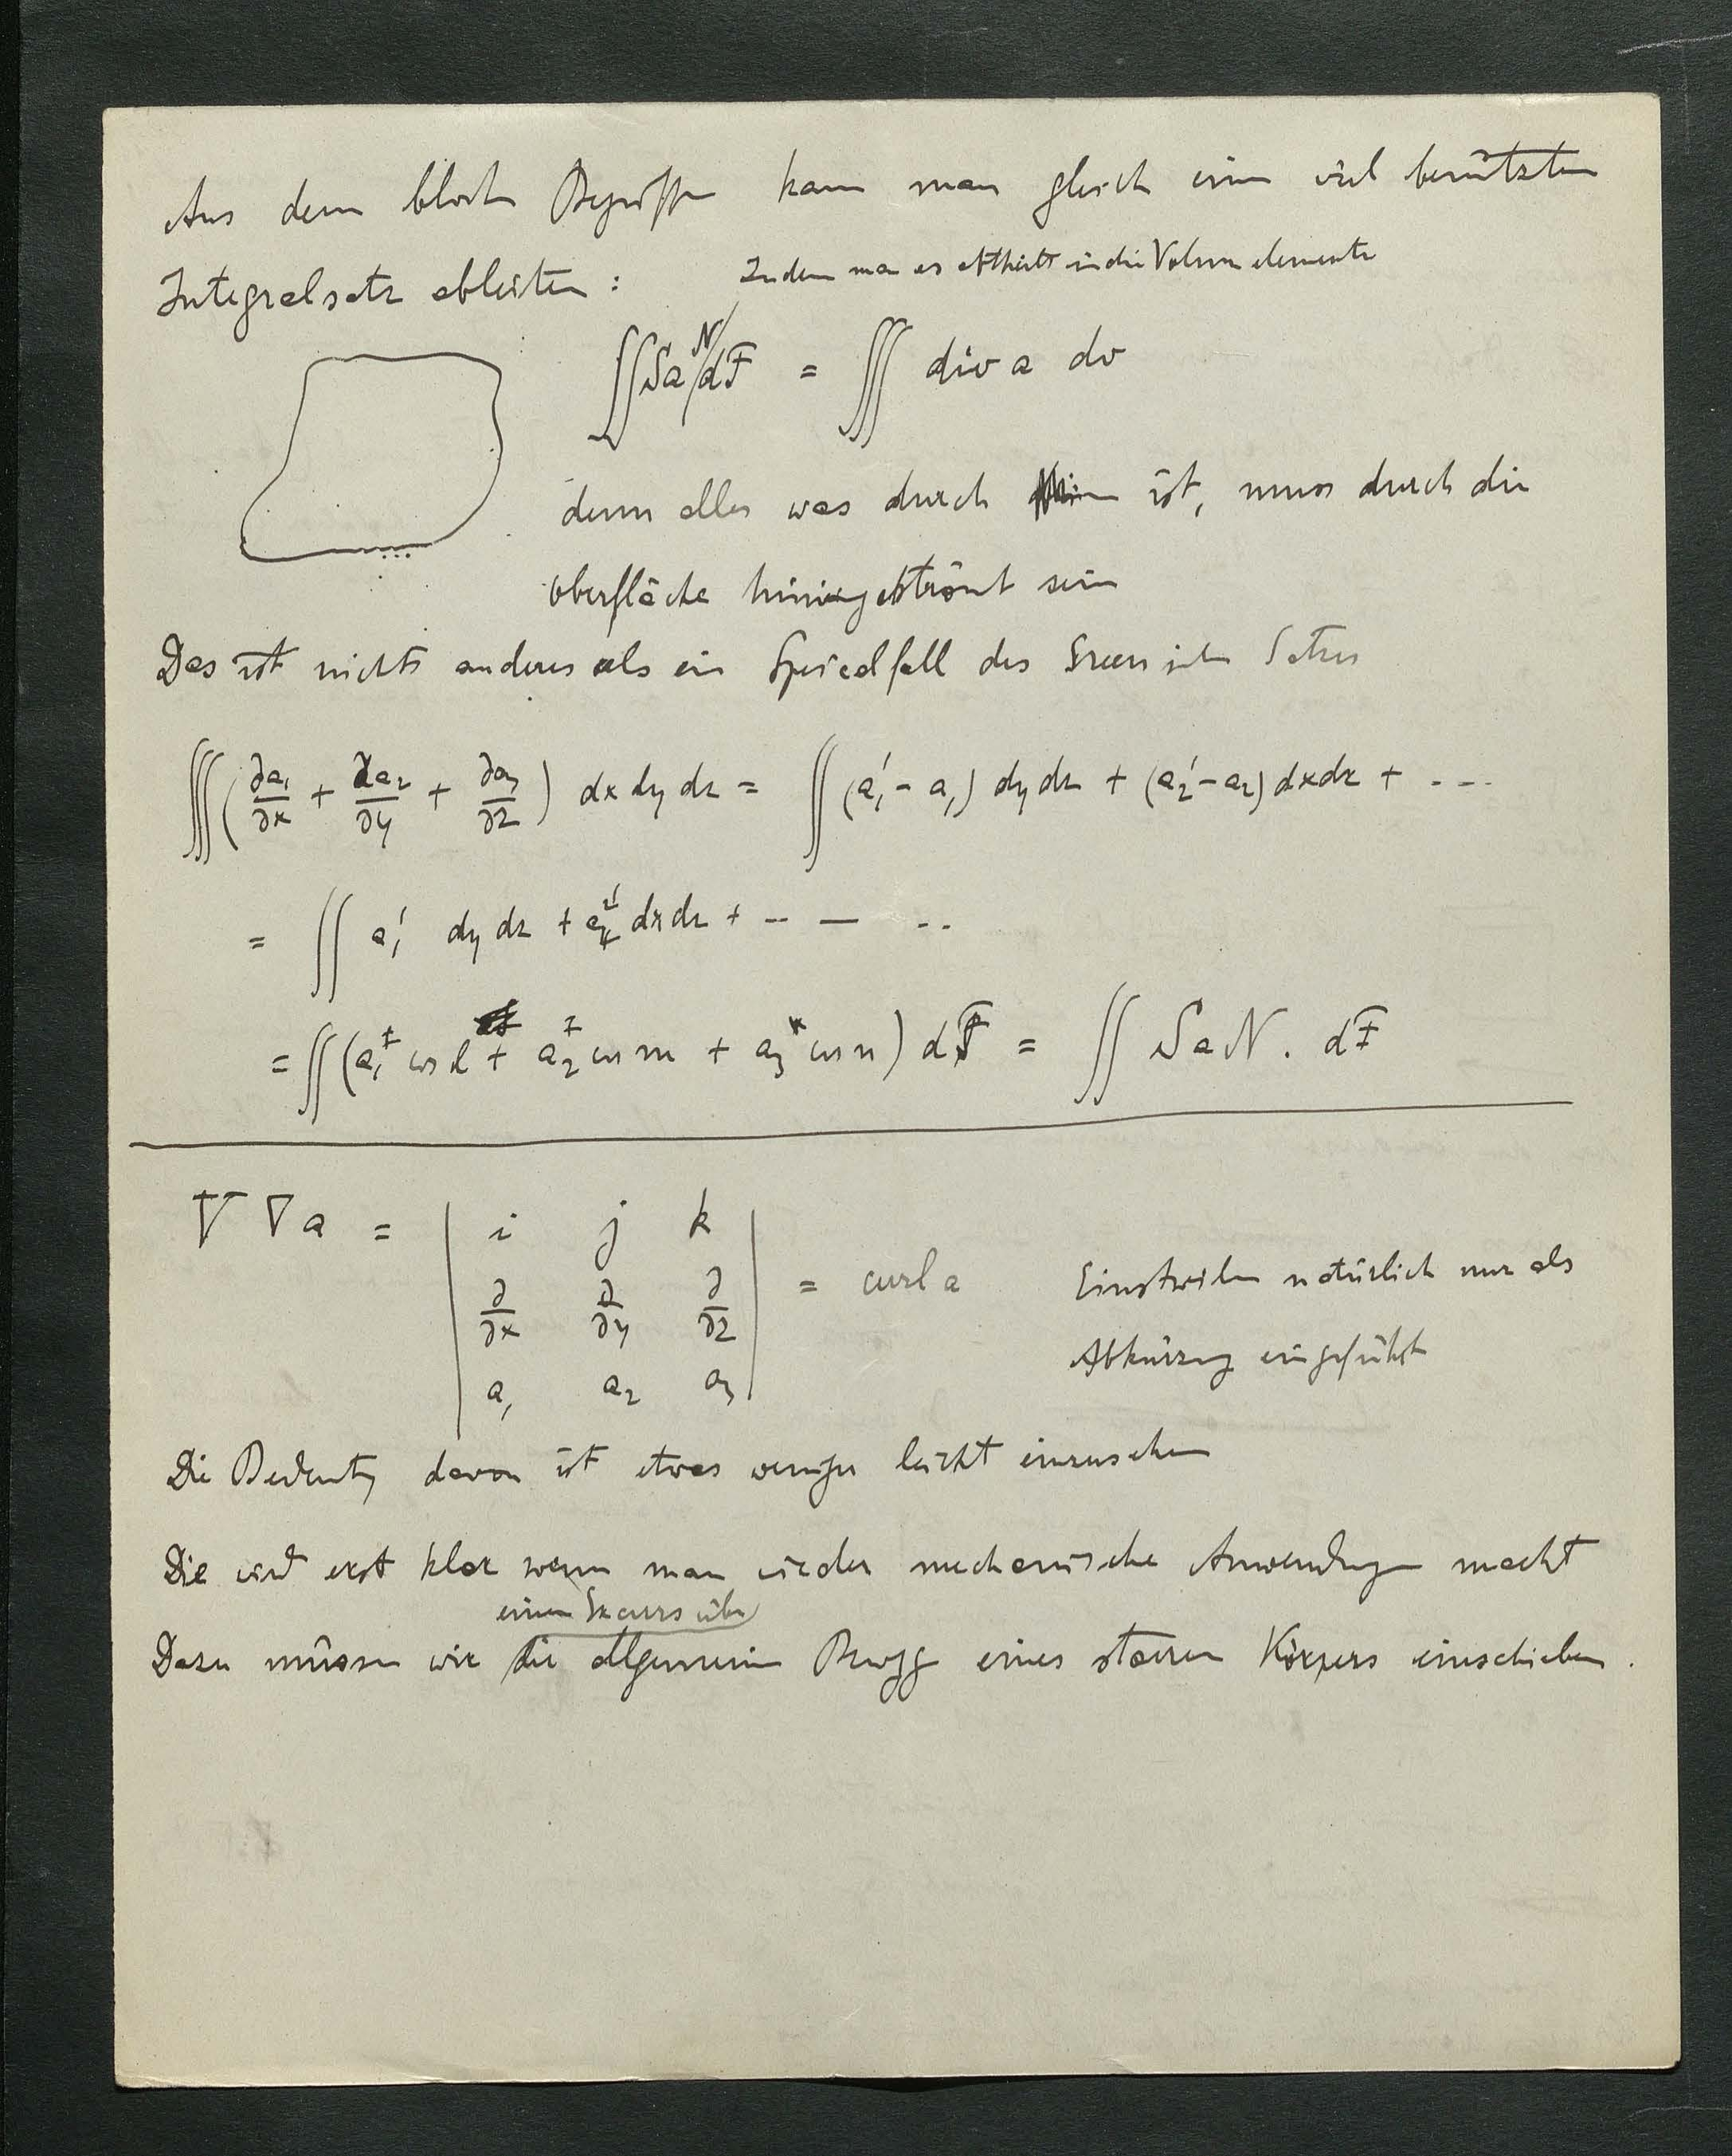 Aus dem Begriffe kann man gleich einen viel benützten
Integralsatz ableiten :
Indem man es abtheilt in die Volumelemente
∬ S a N dF = ∭ div a dv
denn alles was durch ist, muss durch die
Oberfläche sein
Das ist nichts anderes als ein Specialfall des Green'schen Satzes
∭ ( ∂a₁/∂x + ∂a₂/∂y + ∂a₃/∂z ) dx dy dz = ∬ (a₁' - a₁) dy dz + (a₂' - a₂) dx dz + ...
= ∬ a₁' dy dz + a₂' dx dz + -- — --
= ∬ (a₁ cos l + a₂ cos m + a₃ cos n) dF = ∬ S a N . dF
V ∇ a = | i j k |
| ∂/∂x ∂/∂y ∂/∂z | = curl a
| a₁ a₂ a₃ |
Einstweilen natürlich nur als
Abkürzung eingeführt
Die Bedeutg davon ist etwas weniger leicht einzusehen
Die wird erst klar wenn man wieder mechanische Anwendungen macht
einen Excurs über
Dazu müssen wir die allgemeine Bewgg eines starren Körpers einschieben .